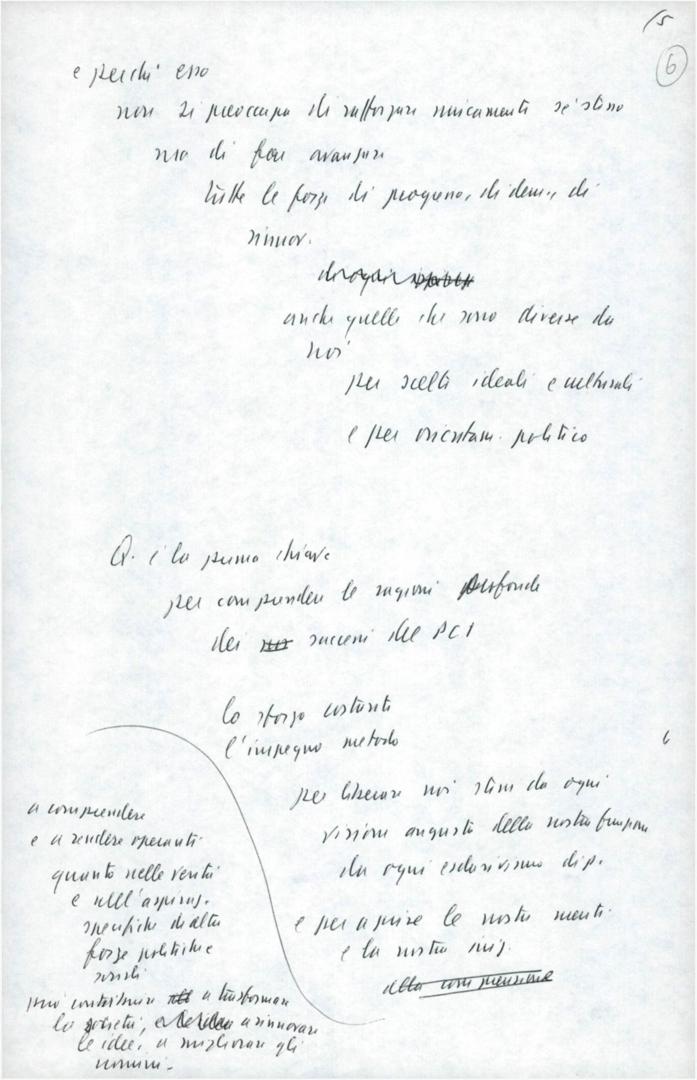 15
6
e perché esso
non si preoccupa di rafforzare unicamente se' stesso
ma di fare avanzare
tutte le forze di progresso, di dem., di
rinnov.
anche quelle che sono diverse da
noi
per scelte ideali e culturali
e per orientam. politico
Q. è la prima chiave
per comprendere le ragioni profonde
dei successi del PCI
lo sforzo costante
l'impegno metodo
per liberare noi stessi da ogni
visione angusta della nostra funzione
da ogni esclusivismo di p.
e per aprire le nostre menti
e la nostra iniz.
alla comprensione
a comprendere
e a rendere operanti
quanto nelle verità
e nell'aspiraz.
specifiche di altre
forze politiche e
sociali
può contribuire a trasformare
la società, a rinnovare
le idee, a migliorare gli
uomini.